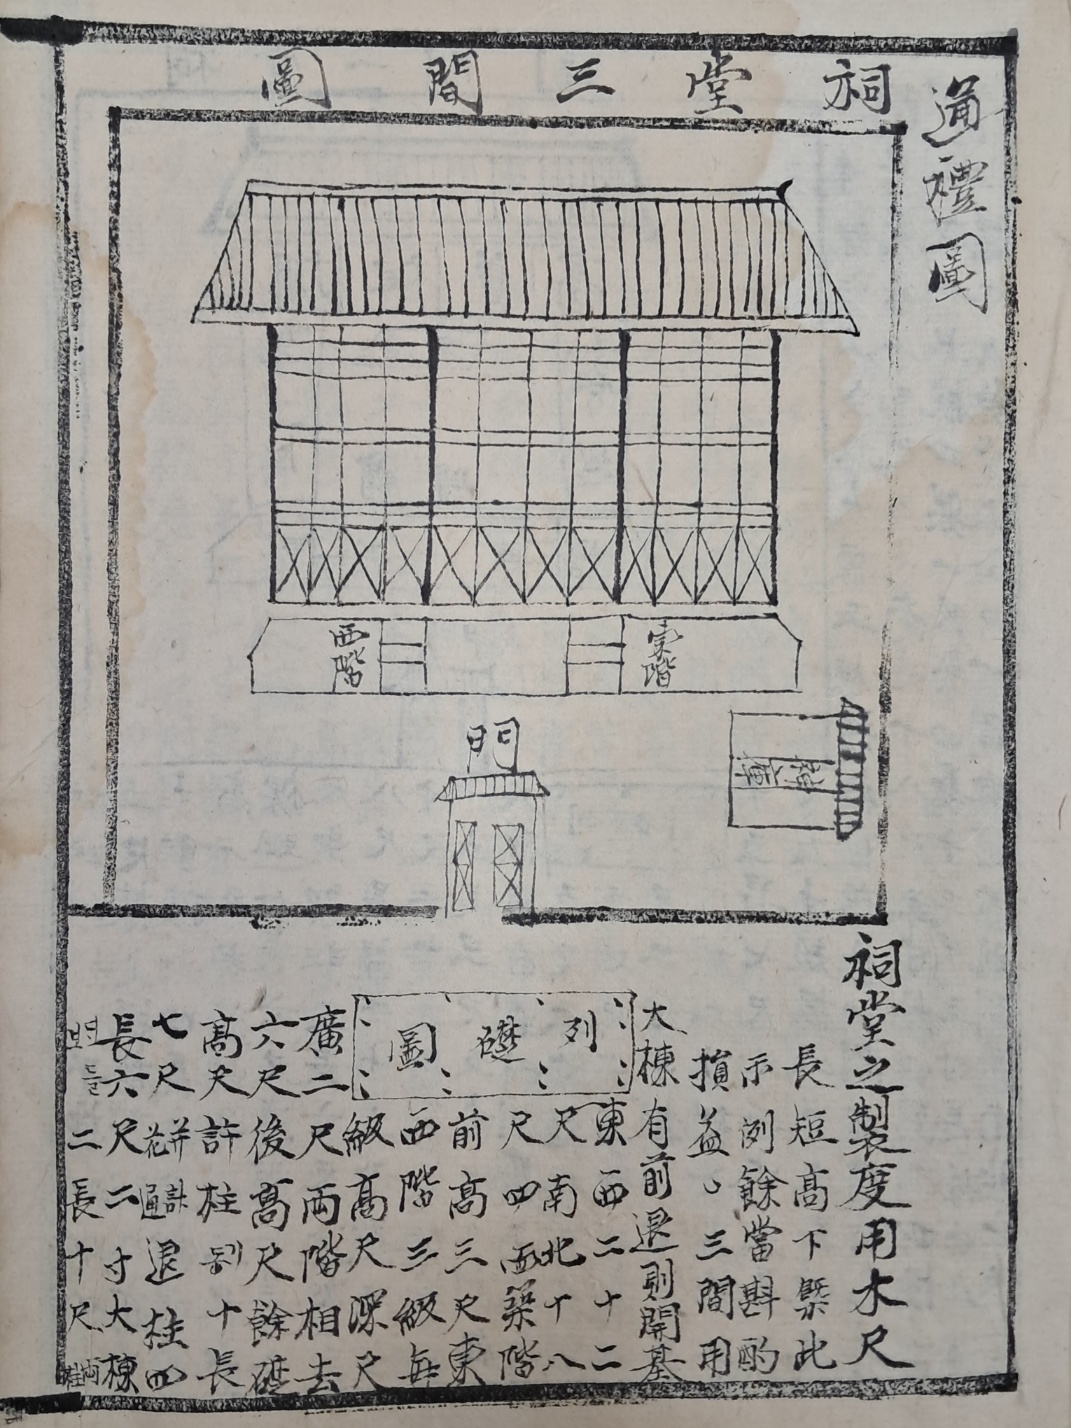 通禮圖
祠堂三間圖
西階
東階
門
祠堂之製度用木尺
長短高下槩此
示例餘當斟酌
損益三間用
大棟有前退則開基
列礎圖
東西二十二
尺南北十八
尺四面築階
前高三尺東
西階三級每
級高尺深尺
廣二尺両階相去
六尺後高尺餘礎
高尺許柱則十長
七尺退柱四
長六尺二寸大棟
二長十尺